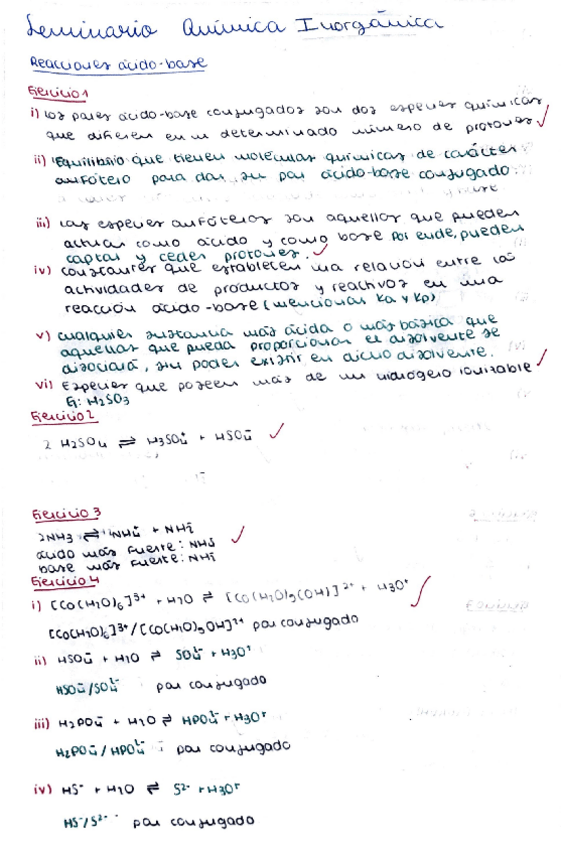 Seminario Química Inorgánica
Reacciones ácido-base
Ejercicio 1
i) Los pares ácido-base conjugados son dos especies químicas
que difieren en un determinado número de protones
ii) Equilibrio que tienen moléculas químicas de carácter
anfótero para dar su par ácido-base conjugado.
iii) Las especies anfóteros son aquellos que pueden
actuar como ácido y como base por ende, pueden
captar y ceder protones.
iv) Constantes que establecen una relación entre las
actividades de productos y reactivos en una
reacción ácido-base (mencionar Ka y Kp)
v) Cualquier sustancia más ácida o más básica que
aquellas que pueda proporcionar el disolvente se
disociará, sin poder existir en dicho disolvente.
vi) Especies que poseen más de un hidrógeno ionizable
Ej: H₂SO₃
Ejercicio 2
2 H₂SO₄ ⇌ H₃SO₄⁺ + HSO₄⁻
Ejercicio 3
2NH₃ ⇌ NH₄⁺ + NH₂⁻
ácido más fuerte: 
base más fuerte: NH₂⁻
Ejercicio 4
i) [Co(H₂O)₆]³⁺ + H₂O ⇌ [Co(H₂O)₅(OH)]²⁺ + H₃O⁺
[Co(H₂O)₆]³⁺/[Co(H₂O)₅OH]²⁺ par conjugado
ii) HSO₄⁻ + H₂O ⇌ SO₄²⁻ + H₃O⁺
HSO₄⁻/SO₄²⁻ par conjugado
iii) H₂PO₄⁻ + H₂O ⇌ HPO₄²⁻ + H₃O⁺
H₂PO₄⁻/HPO₄²⁻ par conjugado
iv) HS⁻ + H₂O ⇌ S²⁻ + H₃O⁺
HS⁻/S²⁻ par conjugado